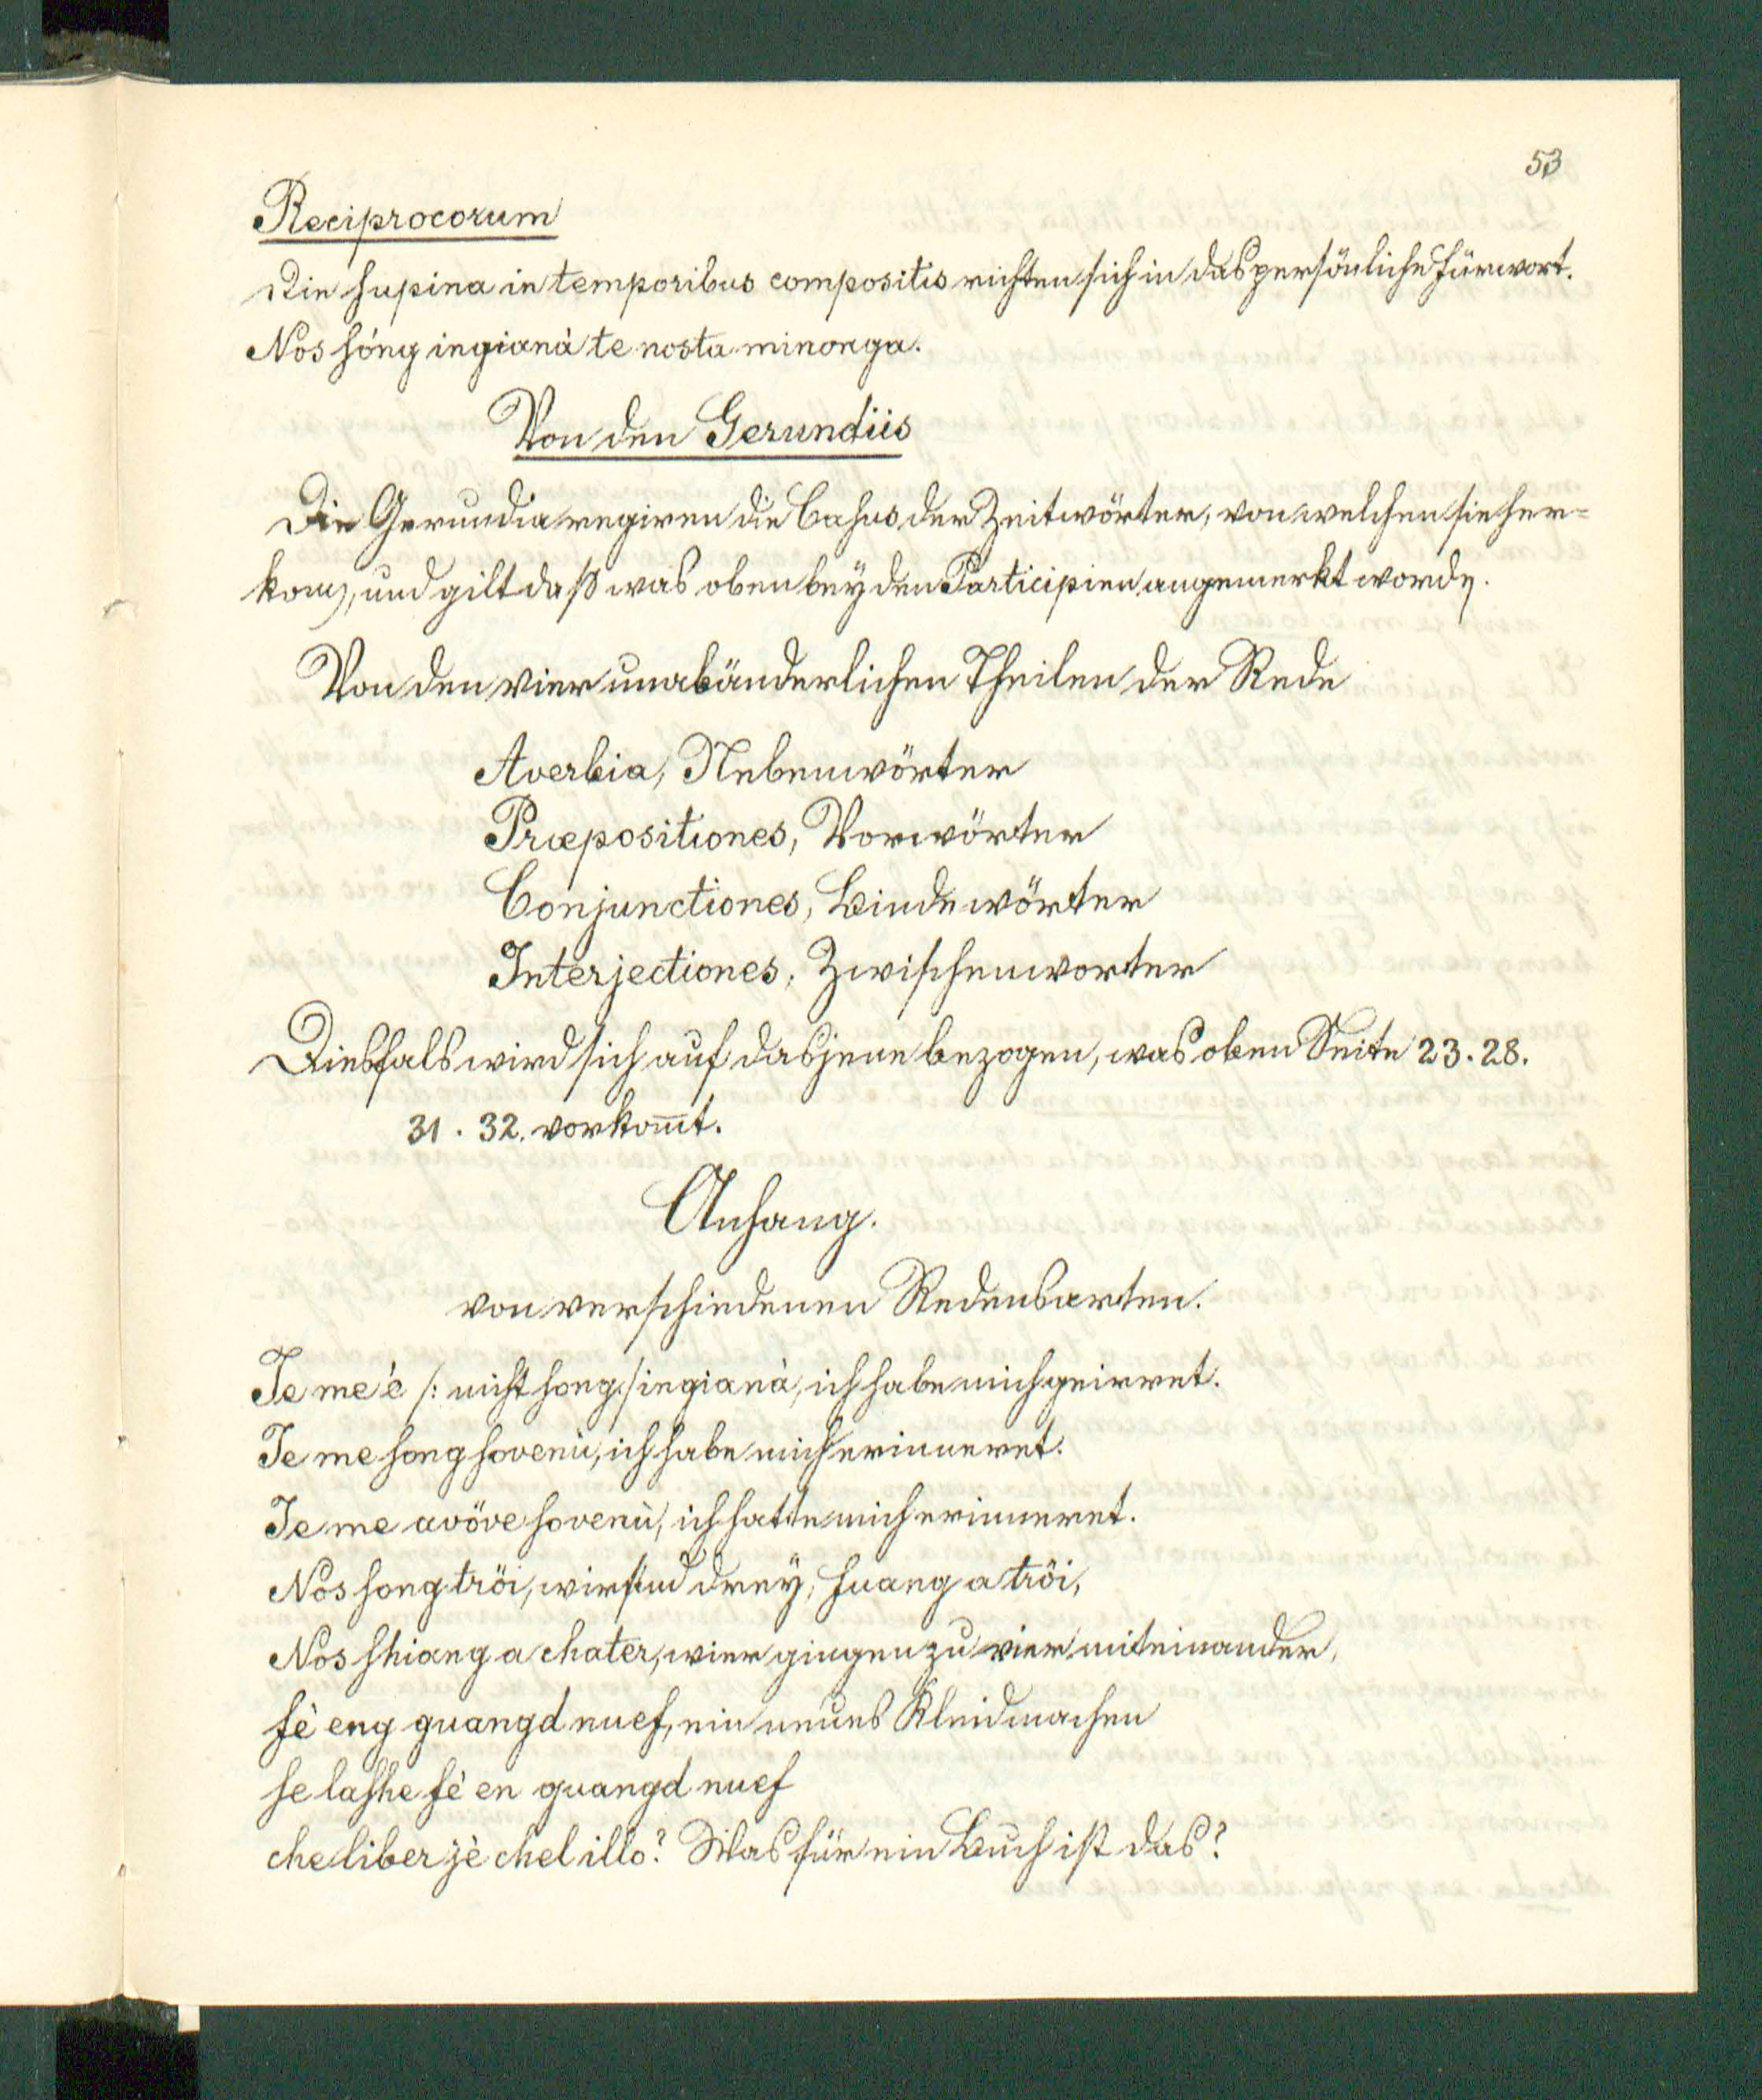 53
Reciprocorum
Die supina in temporibus compositis richten sich in das persönliche Fürwort.
Nos sóng ingianà te nosta minonga.
Von den Gerundiis
Die Gerundia regiren die Casus der Zeitwörter, von welchen sie her=
kom̅, und gilt daß was oben bey den Participien angemerkt word̅.
Von den vier unabänderlichen Theilen der Rede
Averbia, Nebenwörter
Præpositiones, Vorwörter
Conjunctiones, Bindewörter
Interjectiones, Zwischenworter
Diesfals wird sich auf dasjene bezogen, was oben Seite 23. 28.
31. 32. vorkom̅t.
Anhang.
von verschiedenen Redensarten.
Je me è /: nicht song :/ ingianà, ich habe mich geirret.
Je me song sovenù, ich habe mich erinneret.
Je me avöve sovenù, ich hatte mich erinneret.
Nos song tröi, wir sind drey, suang a tröi,
Nos shiang a chater, wier gingen zu vier miteinander,
fè eng guangd nuef, ein neues Kleid machen
se lashe fè en guangd nuef
che liber jè chel illò? Was für ein Buch ist das?